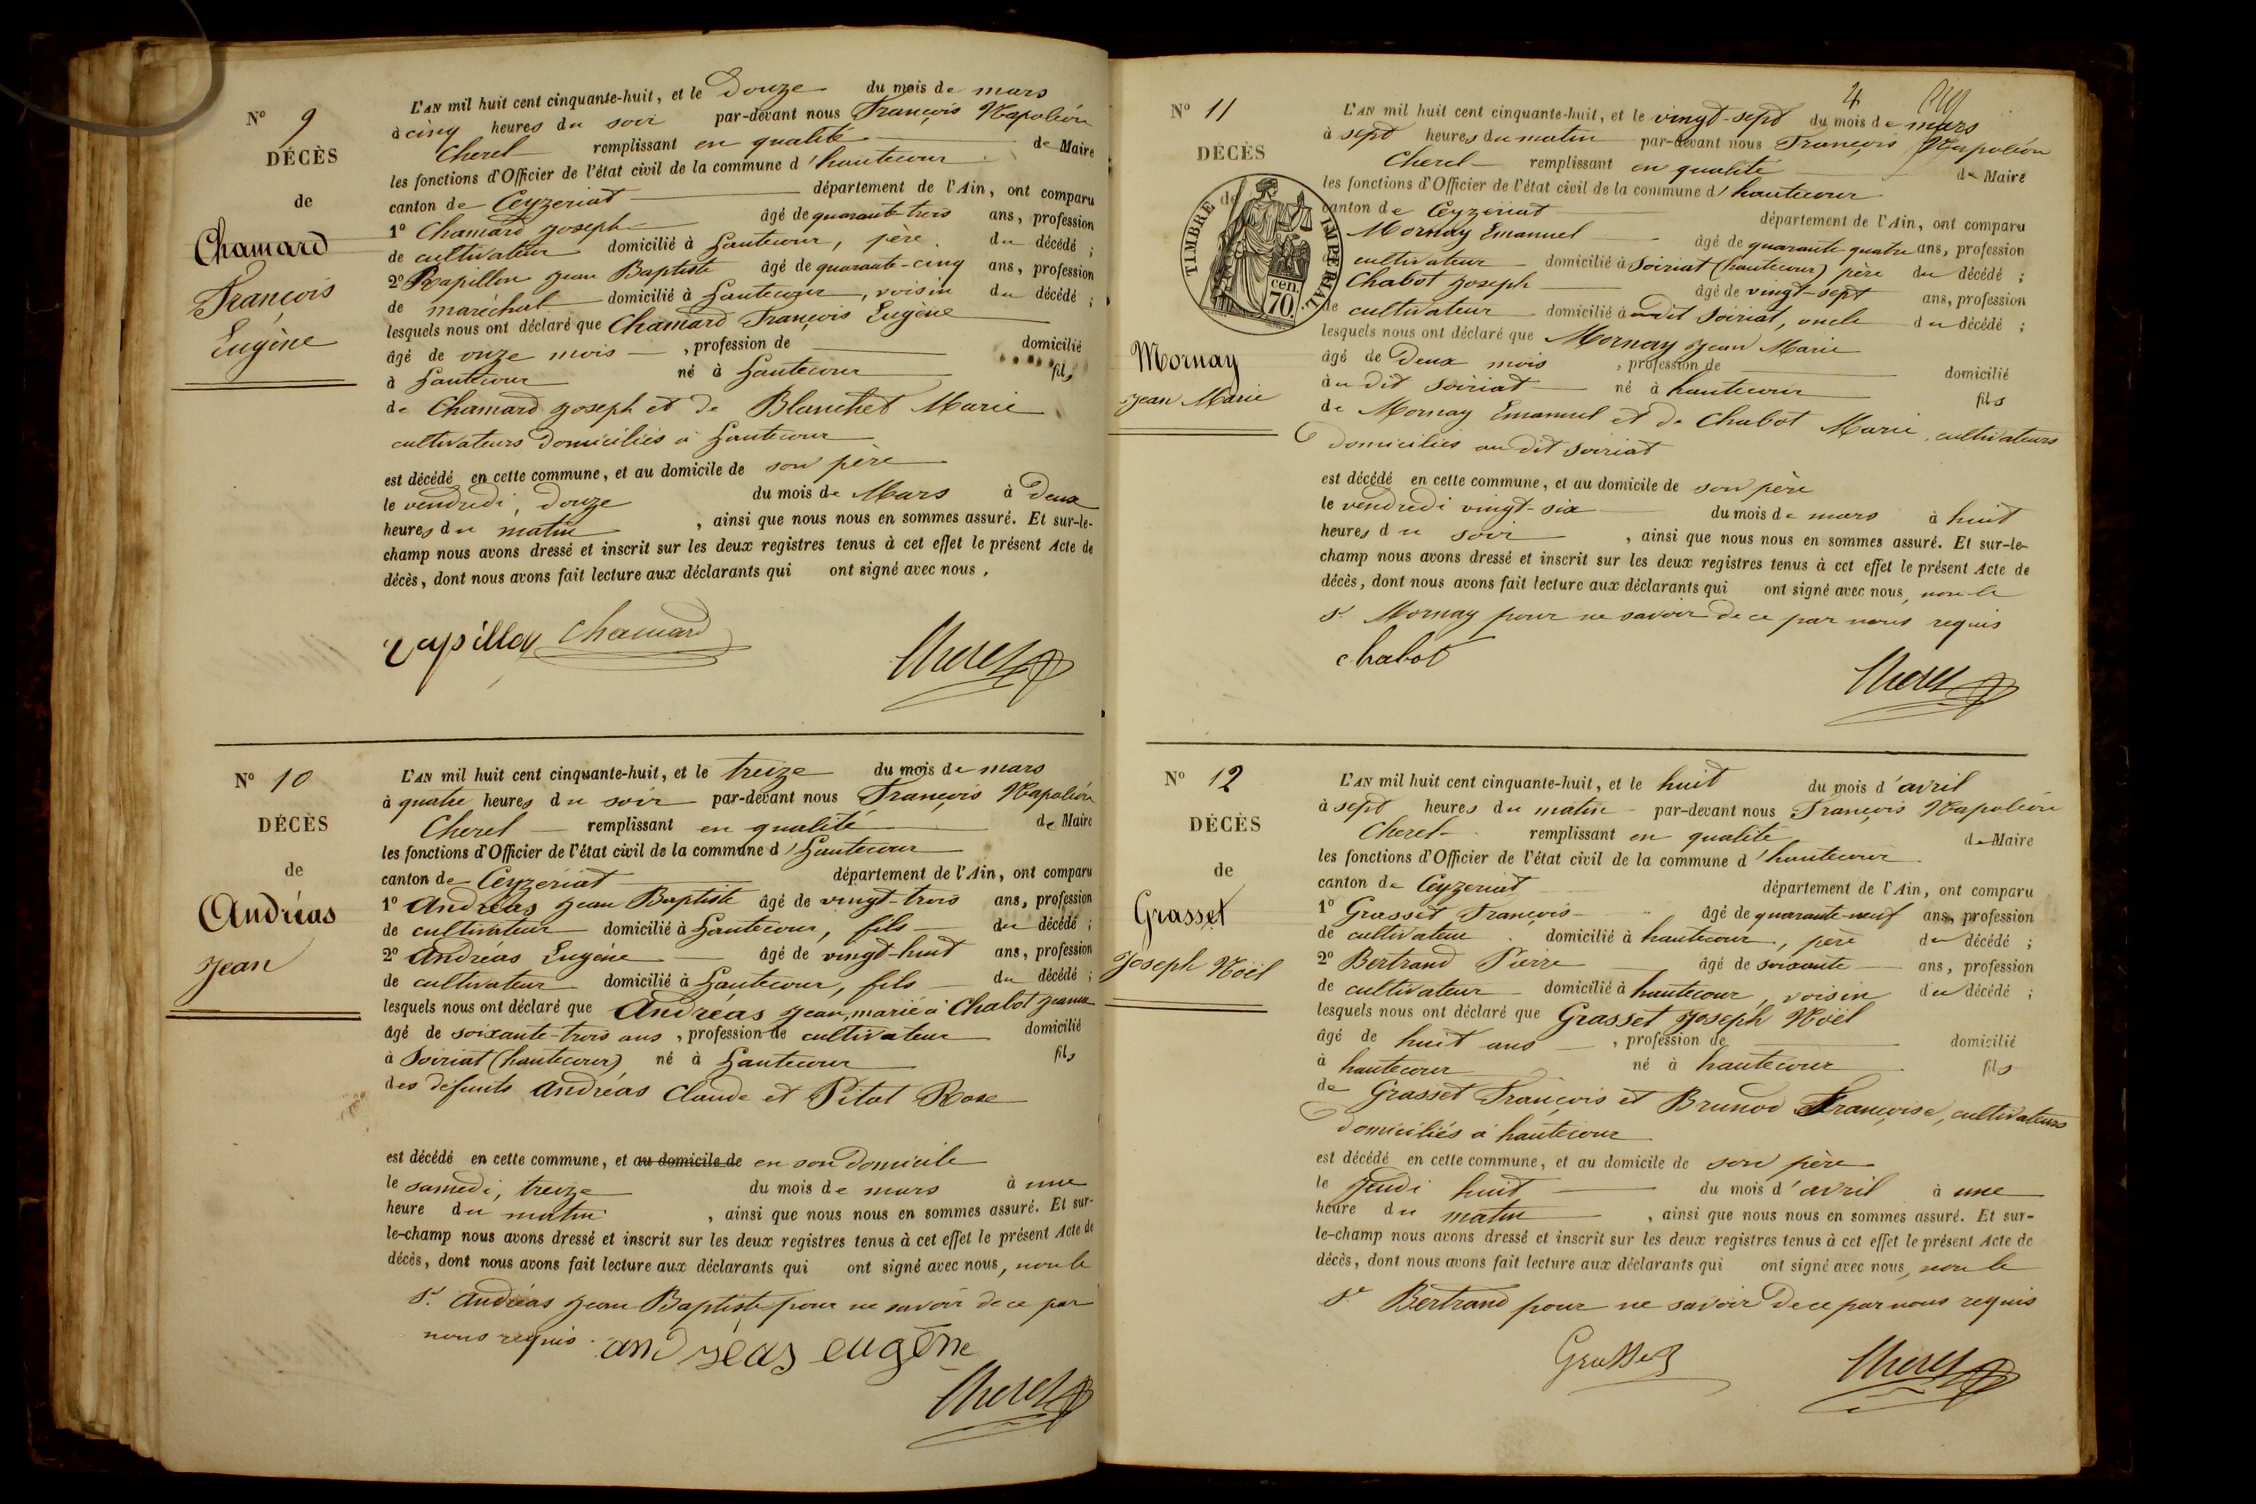 N° 9
DÉCÈS
de
Chamard
François
Eugène
L'AN mil huit cent cinquante-huit, et le Douze du mois de mars
à cinq heures du soir par-devant nous François Napoléon
Cherel remplissant en qualité de Maire
les fonctions d'Officier de l'état civil de la commune d'hautecour
canton de Ceyzeriat département de l'Ain, ont comparu
1° Chamard Joseph âgé de quarante-trois ans, profession
de cultivateur domicilié à hautecour, père du décédé ;
2° Rapillon Jean Baptiste âgé de quarante-cinq ans, profession
de maréchal domicilié à hautecour, voisin du décédé ;
lesquels nous ont déclaré que Chamard François Eugène
âgé de onze mois, profession de domicilié
à hautecour né à hautecour fils
de Chamard Joseph et de Blanchet Marie
cultivateurs domiciliés à hautecour
est décédé en cette commune, et au domicile de son père
le vendredi, douze du mois de Mars à Deux
heures du matin, ainsi que nous nous en sommes assuré. Et sur-le-
champ nous avons dressé et inscrit sur les deux registres tenus à cet effet le présent Acte de
décès, dont nous avons fait lecture aux déclarants qui ont signé avec nous.
rapillon Chamard
Cherel
N° 10
DÉCÈS
de
Andréas
Jean
L'AN mil huit cent cinquante-huit, et le treize du mois de mars
à quatre heures du soir par-devant nous François Napoléon
Cherel remplissant en qualité de Maire
les fonctions d'Officier de l'état civil de la commune d'hautecour
canton de Ceyzeriat département de l'Ain, ont comparu
1° Andréas Jean Baptiste âgé de vingt-trois ans, profession
de cultivateur domicilié à hautecour, fils du décédé ;
2° Andréas Eugène âgé de vingt-huit ans, profession
de cultivateur domicilié à hautecour, fils du décédé ;
lesquels nous ont déclaré que Andréas Jean, marié à Chabot Jeanne
âgé de soixante-trois ans, profession de cultivateur domicilié
à Soiriat (hautecour) né à hautecour fils
des défunts Andréas Claude et Pitot Rose
est décédé en cette commune, et au domicile de en son domicile
le samedi, treize du mois de mars à une
heure du matin, ainsi que nous nous en sommes assuré. Et sur-
le-champ nous avons dressé et inscrit sur les deux registres tenus à cet effet le présent Acte de
décès, dont nous avons fait lecture aux déclarants qui ont signé avec nous, non le
Sr. Andréas Jean Baptiste pour ne savoir de ce par
nous requis. andréas eugène
Cherel
4
N° 11
DÉCÈS
de
TIMBRE IMPERIAL
70 cen.
Mornay
Jean Marie
L'AN mil huit cent cinquante-huit, et le vingt-sept du mois de mars
à sept heures du matin par-devant nous François Napoléon
Cherel remplissant en qualité de Maire
les fonctions d'Officier de l'état civil de la commune d'hautecour
canton de Ceyzeriat département de l'Ain, ont comparu
Mornay Emanuel âgé de quarante-quatre ans, profession
cultivateur domicilié à Soiriat (hautecour) père du décédé ;
Chabot Joseph âgé de vingt-sept ans, profession
de cultivateur domicilié audit Soiriat, oncle du décédé ;
lesquels nous ont déclaré que Mornay Jean Marie
âgé de Deux mois, profession de domicilié
au dit Soiriat né à hautecour fils
de Mornay Emanuel et de Chabot Marie, cultivateurs
domiciliés au dit Soiriat
est décédé en cette commune, et au domicile de son père
le vendredi vingt-six du mois de mars à huit
heures du soir, ainsi que nous nous en sommes assuré. Et sur-le-
champ nous avons dressé et inscrit sur les deux registres tenus à cet effet le présent Acte de
décès, dont nous avons fait lecture aux déclarants qui ont signé avec nous, non le
Sr. Mornay pour ne savoir de ce par nous requis
chabot
Cherel
N° 12
DÉCÈS
de
Grasset
Joseph Noël
L'AN mil huit cent cinquante-huit, et le huit du mois d'avril
à sept heures du matin par-devant nous François Napoléon
Cherel remplissant en qualité de Maire
les fonctions d'Officier de l'état civil de la commune d'hautecour
canton de Ceyzeriat département de l'Ain, ont comparu
1° Grasset François âgé de quarante-neuf ans, profession
de cultivateur domicilié à hautecour, père du décédé ;
2° Bertrand Pierre âgé de soixante ans, profession
de cultivateur domicilié à hautecour, voisin du décédé ;
lesquels nous ont déclaré que Grasset Joseph Noël
âgé de huit ans, profession de domicilié
à hautecour né à hautecour fils
de Grasset François et Brunod Françoise, cultivateurs
domiciliés à hautecour
est décédé en cette commune, et au domicile de son père
le Jeudi huit du mois d'avril à une
heure du matin, ainsi que nous nous en sommes assuré. Et sur-
le-champ nous avons dressé et inscrit sur les deux registres tenus à cet effet le présent Acte de
décès, dont nous avons fait lecture aux déclarants qui ont signé avec nous, non le
Sr Bertrand pour ne savoir de ce par nous requis
Grasset
Cherel